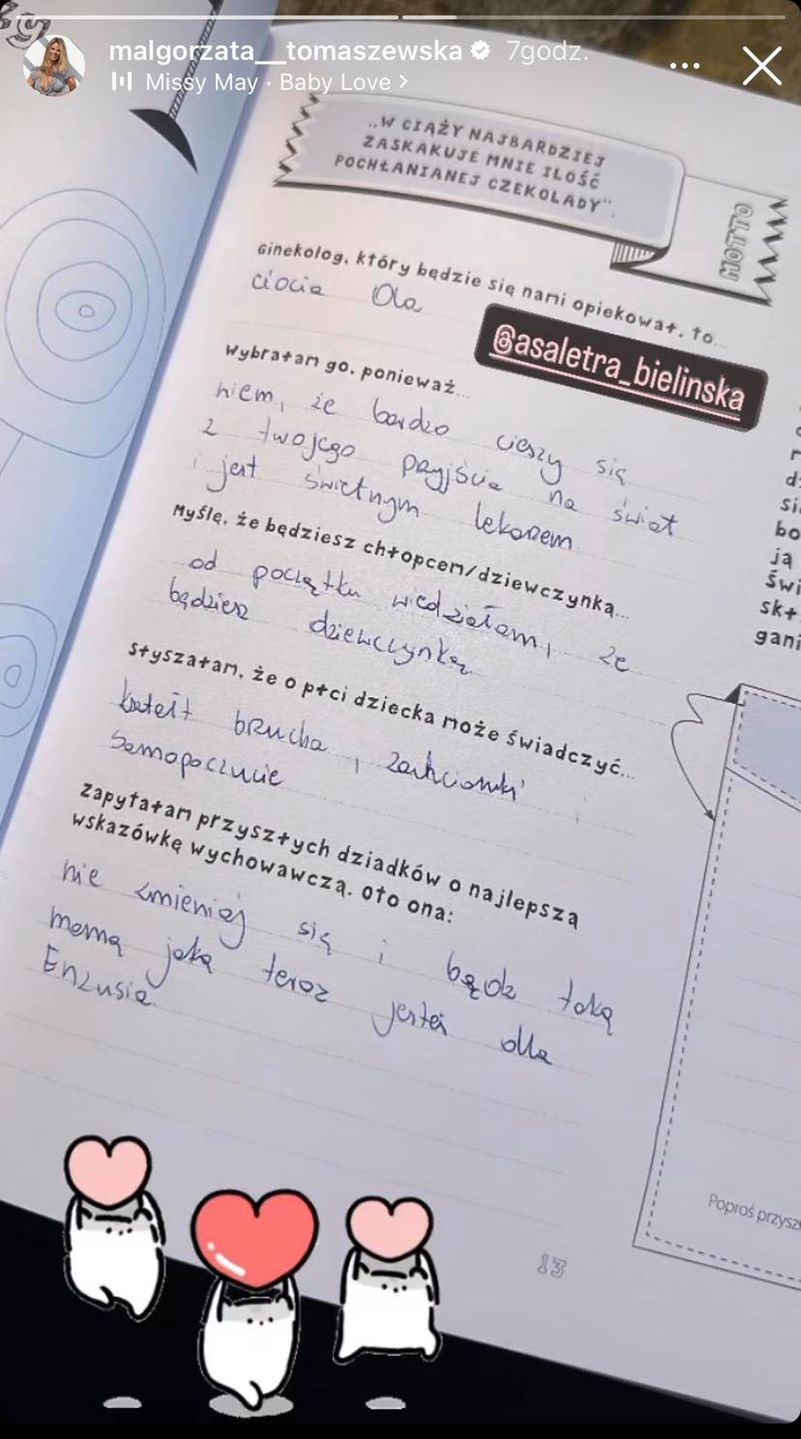 malgorzata__tomaszewska 7godz.
Missy May · Baby Love >
„W CIĄŻY NAJBARDZIEJ
ZASKAKUJE MNIE ILOŚĆ
POCHŁANIANEJ CZEKOLADY”.
MOTTO
Ginekolog, który będzie się nami opiekował, to...
ciocia Ola
@asaletra_bielinska
Wybrałam go, ponieważ...
wiem, że bardzo cieszy się
z twojego przyjścia na świat
i jest świetnym lekarzem
Myślę, że będziesz chłopcem/dziewczynką...
od początku wiedziałam, że
będziesz dziewczynką
Słyszałam, że o płci dziecka może świadczyć...
kształt brzucha, zachcianki,
samopoczucie
Zapytałam przyszłych dziadków o najlepszą
wskazówkę wychowawczą. Oto ona:
nie zmieniaj się i bądź taką
mamą jaką teraz jesteś dla
Enzusia
Poproś
13